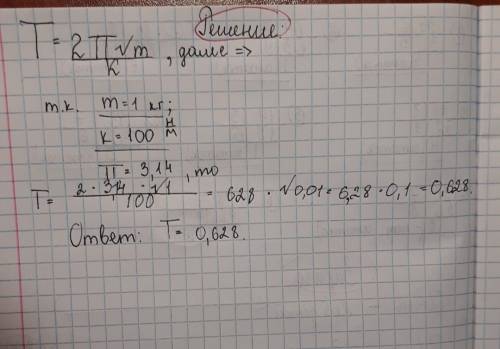 Решение:
T = 2π√m / k , далее =>
т.к. m = 1 кг;
k = 100 Н/м
π = 3,14 , то
T = 2 · 3,14 · √1 / 100 = 628 · √0,01 = 6,28 · 0,1 = 0,628.
Ответ: T = 0,628.